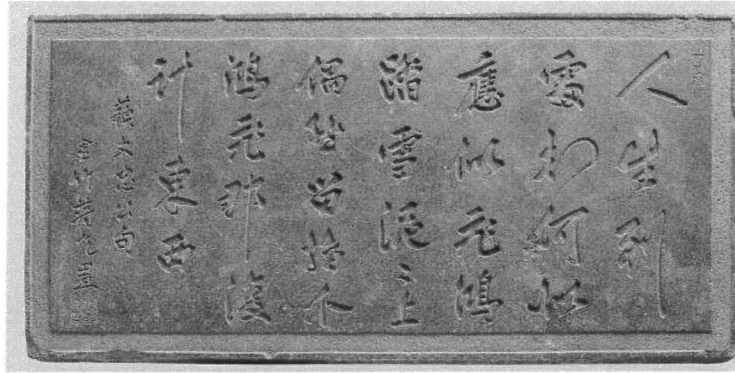 人生到
處知何似
應似飛鴻
踏雪泥〻上
偶然留指爪
鴻飛那復
計東西
蘇文忠公句